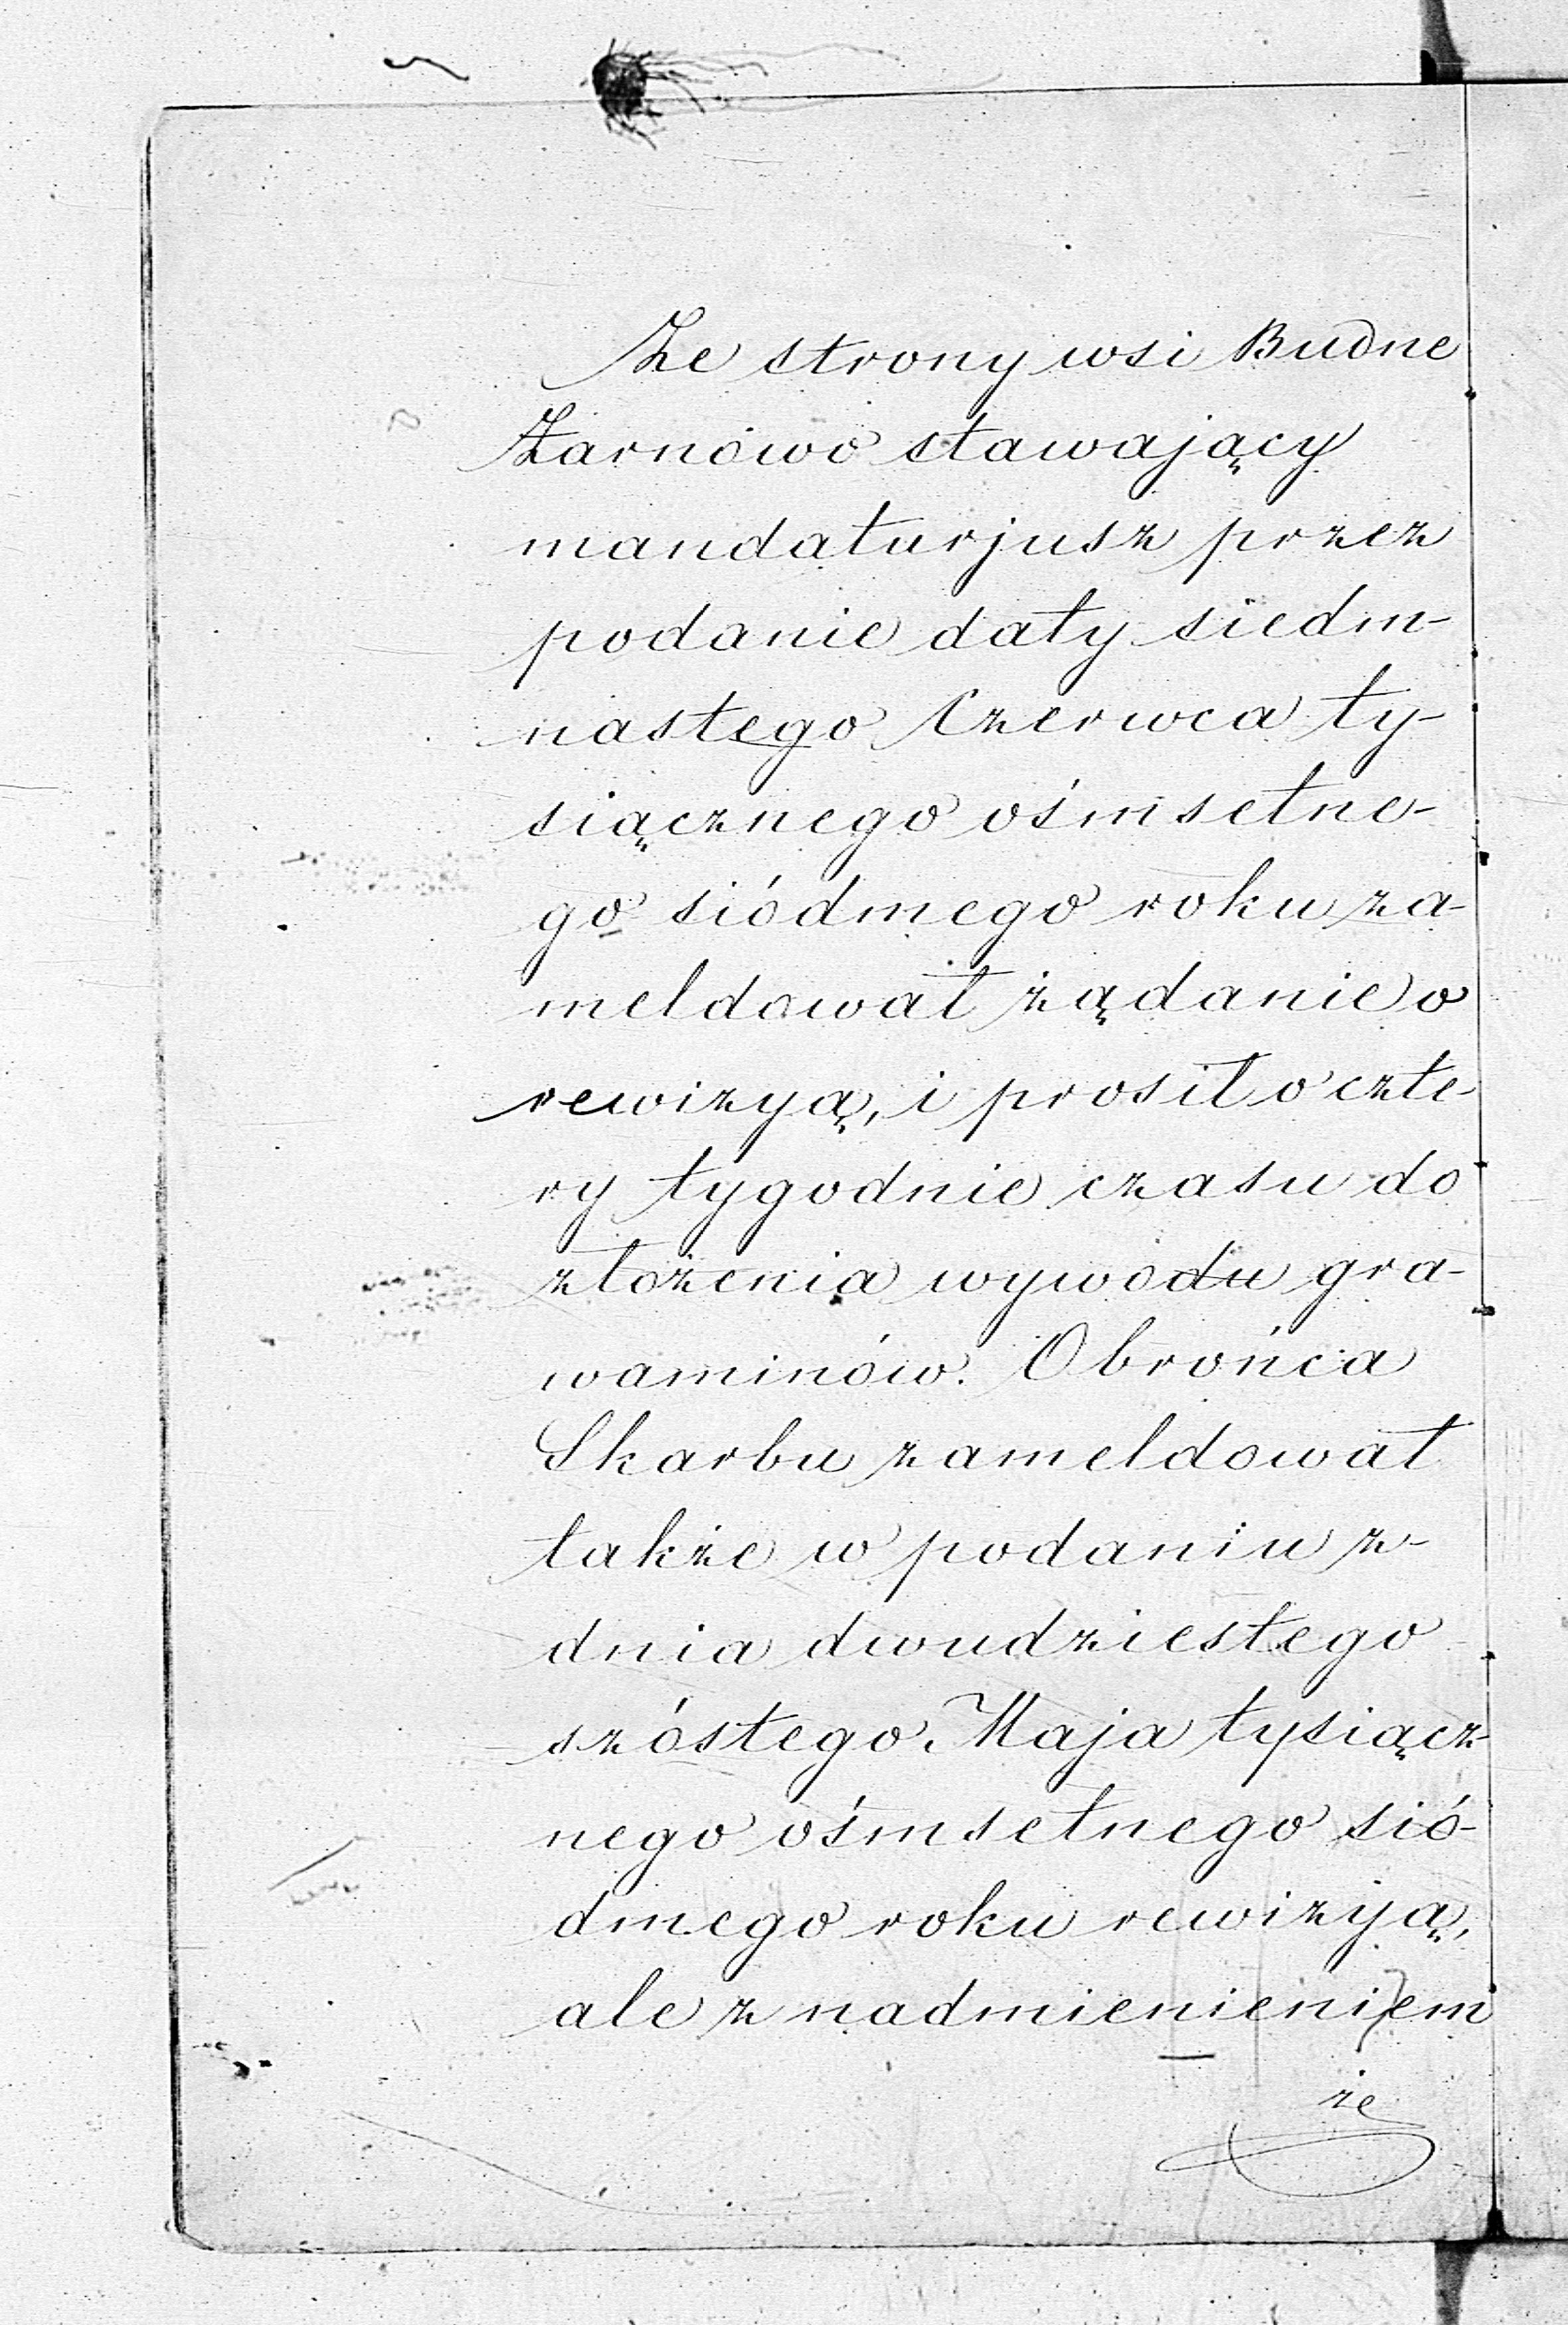 Ze strony wsi Budne
Żarnowo stawający
mandatarjusz przez
podanie daty siedm-
nastego Czerwca ty-
siącznego ośmsetne-
go siódmego roku za-
meldował żądanie o
rewizyą, i prosił o czte-
ry tygodnie czasu do
złożenia wywodu gra-
waminów. Obrońca
Skarbu zameldował
także w podaniu z-
dnia dwudziestego
szóstego Maja tysiącz-
nego ośmsetnego sió-
dmego roku rewizyą,
ale z nadmienieniem
że